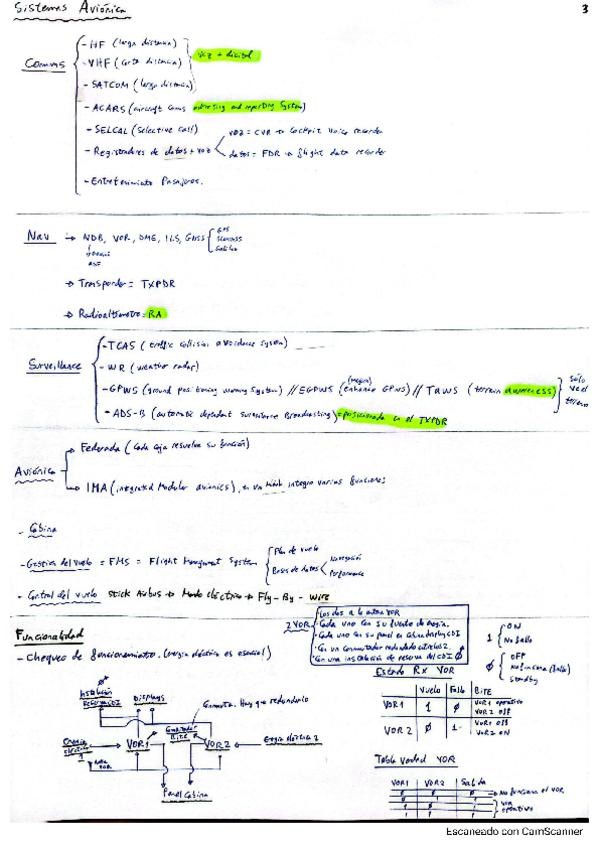 Sistemas Aviónica
3
Comms
- HF (larga distancia)
- VHF (corta distancia)
voz + digital
- SATCOM (larga distancia)
- ACARS (aircraft coms addressing and reporting System)
- SELCAL (Selective call)
- Registradores de datos + voz
voz = CVR → Cockpit Voice recorder
datos = FDR → flight data recorder
- Entretenimiento Pasajeros.
Nav → NDB, VOR, DME, ILS, GNSS
GPS
Glonass
Galileo
ADF
→ Transponder = TXPDR
→ Radioaltímetro = RA
Surveillance
- TCAS (traffic collision avoidance system)
- WR (weather radar)
- GPWS (ground positioning warning System) // EGPWS (enhance GPWS) // TAWS (terrain awareness)
(mejora)
sólo
ve el
terreno
- ADS-B (automatic dependent surveillance Broadcasting) = posicionada en el TXPDR
Aviónica
Federada (Cada caja resuelve su función)
IMA (integrated Modular avionics), en un integro varias funciones
- Cabina
- Gestión del vuelo = FMS = Flight Managment System
Plan de vuelo
Bases de datos
Navegación
Performance
- Control del vuelo stick Airbus → Mando eléctrico → Fly-By-Wire
Funcionalidad
- Chequeo de funcionamiento. (energía eléctrica es esencial)
2 VOR
- Cada uno con su fuente de energía.
- Cada uno con su panel en cabina display CDI
- Con un conmutador redundado
- Con una instalación de reserva del CDI
1
ON
No fallo
0
OFF
No funciona (fallo)
standby
Estado Rx VOR
Vuelo Fallo BITE
VOR1 1 0 VOR1 operativo
VOR2 OFF
VOR2 0 1 VOR1 OFF
VOR2 ON
Instalación
Reserva CDI
Displays
Conmutador
BITE
Conmuta. Hay que redundarlo
Energía
eléctrica
1
VOR1
VOR2
Energía eléctrica 2
Panel Cabina
Tabla Verdad VOR
VOR1 VOR2 Salida
0 0 0 → No funciona el VOR
0 1 1
1 0 1
1 1 1
VOR
operativo
Escaneado con CamScanner